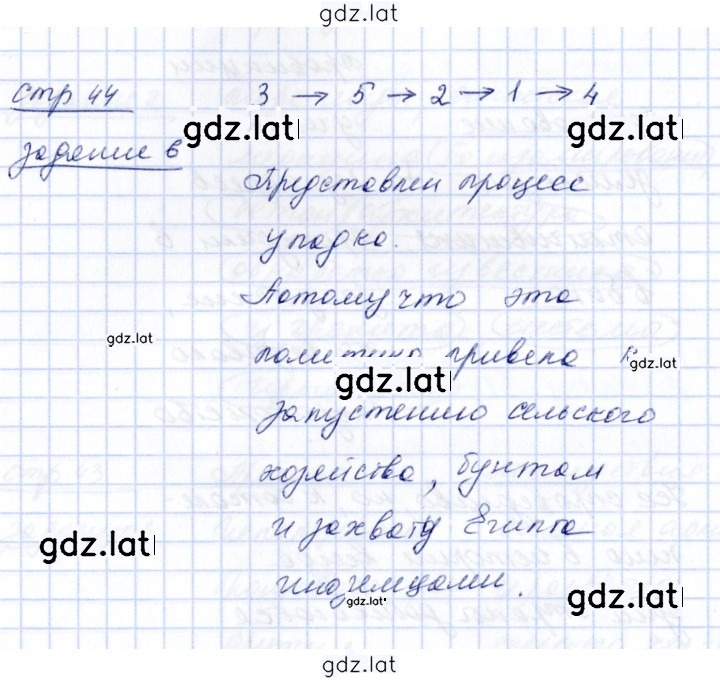 gdz.lat
стр 44 3 → 5 → 2 → 1 → 4
gdz.lat gdz.lat
задание 6
Представлен процесс
упадка.
Потому что эта
gdz.lat
политика привела к
gdz.lat
gdz.lat
запустению сельского
хозяйства, бунтам
и захвату Египта
gdz.lat
иноземцами.
gdz.lat
gdz.lat
gdz.lat